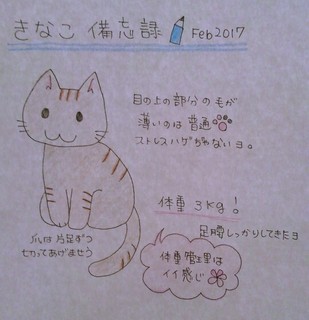 きなこ 備忘録 Feb 2017
目の上の部分の毛が
薄いのは普通
ストレスハゲぢゃないョ。
体重 3kg!
足腰しっかりしてきたョ
爪は片足ずつ
切ってあげませう
体重管理は
イイ感じ